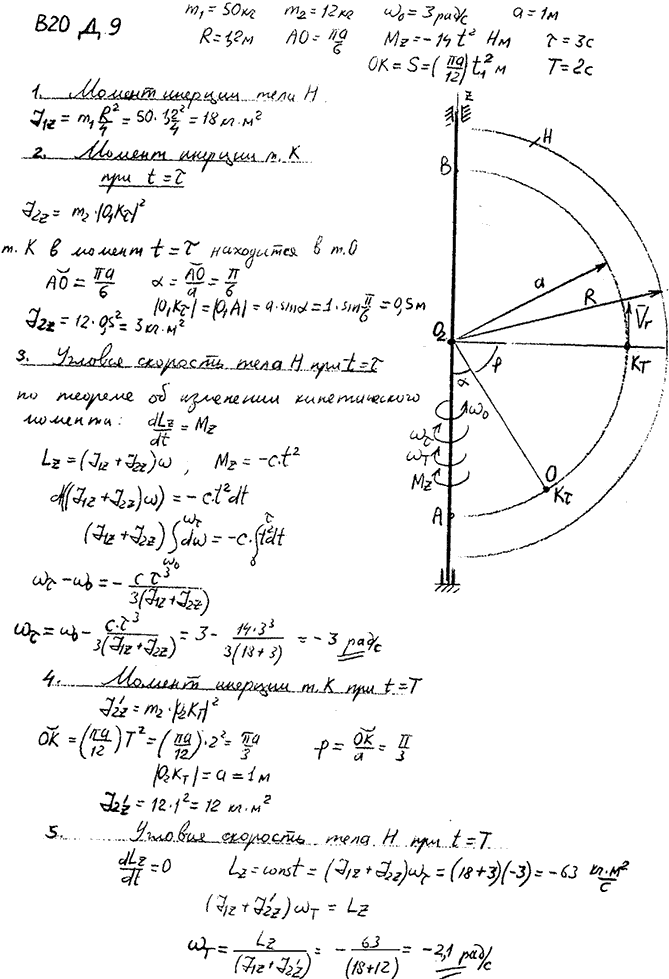 В20 Д.9
m₁ = 50кг m₂ = 12кг ω₀ = 3 рад/с a = 1м
R = 1,2м AO = πa/6 Mz = −14t² Нм τ = 3с
OK = S = (πa/12)t₁² м T = 2с
1. Момент инерции тела H
J₁z = m₁ R²/4 = 50·1,2²/4 = 18 кг·м²
2. Момент инерции т. К
при t = τ
J₂z = m₂·|O₁Kτ|²
т. К в момент t = τ находится в т.О
AO = πa/6 α = AO/a = π/6
|O₁Kτ| = |O₁A| = a·sinα = 1·sin π/6 = 0,5м
J₂z = 12·0,5² = 3 кг·м²
3. Угловая скорость тела H при t = τ
по теореме об изменении кинетического
момента: dLz/dt = Mz
Lz = (J₁z + J₂z)ω ; Mz = −c·t²
d((J₁z + J₂z)ω) = −c·t²dt
(J₁z + J₂z) ∫ω₀^ωτ dω = −c·∫₀^τ t²dt
ωτ − ω₀ = − cτ³/3(J₁z + J₂z)
ωτ = ω₀ − c·τ³/3(J₁z + J₂z) = 3 − 14·3³/3(18+3) = −3 рад/с
4. Момент инерции т. К при t = T
J₂z' = m₂·|O₂K_T|²
OK = (πa/12)T² = (πa/12)·2² = πa/3 φ = OK/a = π/3
|O₂K_T| = a = 1м
J₂z' = 12·1² = 12 кг·м²
5. Угловая скорость тела H при t = T
dLz/dt = 0 Lz = const = (J₁z + J₂z)ωτ = (18+3)(−3) = −63 кг·м²/с
(J₁z + J₂z')ω_T = Lz
ω_T = Lz/(J₁z + J₂z') = − 63/(18+12) = −2,1 рад/с
z
H
B
a
R
V̄r
O₂
K_T
φ
α
ω₀
ωτ
ω_T
Mz
O
Kτ
A